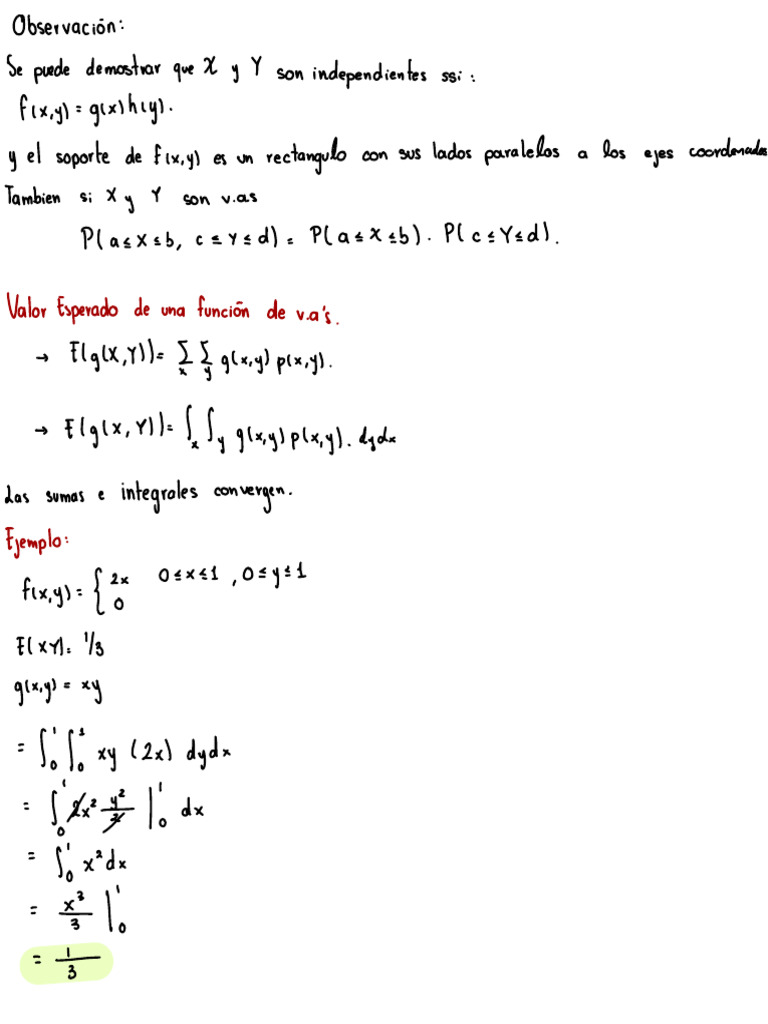 Observación:
Se puede demostrar que X y Y son independientes ssi:
f(x,y) = g(x)h(y).
y el soporte de f(x,y) es un rectangulo con sus lados paralelos a los ejes coordenados
Tambien si X y Y son v.as
P(a ≤ X ≤ b, c ≤ Y ≤ d) = P(a ≤ X ≤ b) . P(c ≤ Y ≤ d).
Valor Esperado de una función de v.a's.
→ E(g(X,Y)) = ∑x ∑y g(x,y) p(x,y).
→ E(g(X,Y)) = ∫x ∫y g(x,y) p(x,y). dydx
Las sumas e integrales convergen.
Ejemplo:
f(x,y) = { 2x 0 ≤ x ≤ 1, 0 ≤ y ≤ 1
0
E(XY) = 1/3
g(x,y) = xy
= ∫₀¹ ∫₀¹ xy (2x) dydx
= ∫₀¹ 2x² y²/2 |₀¹ dx
= ∫₀¹ x² dx
= x³/3 |₀¹
= 1/3